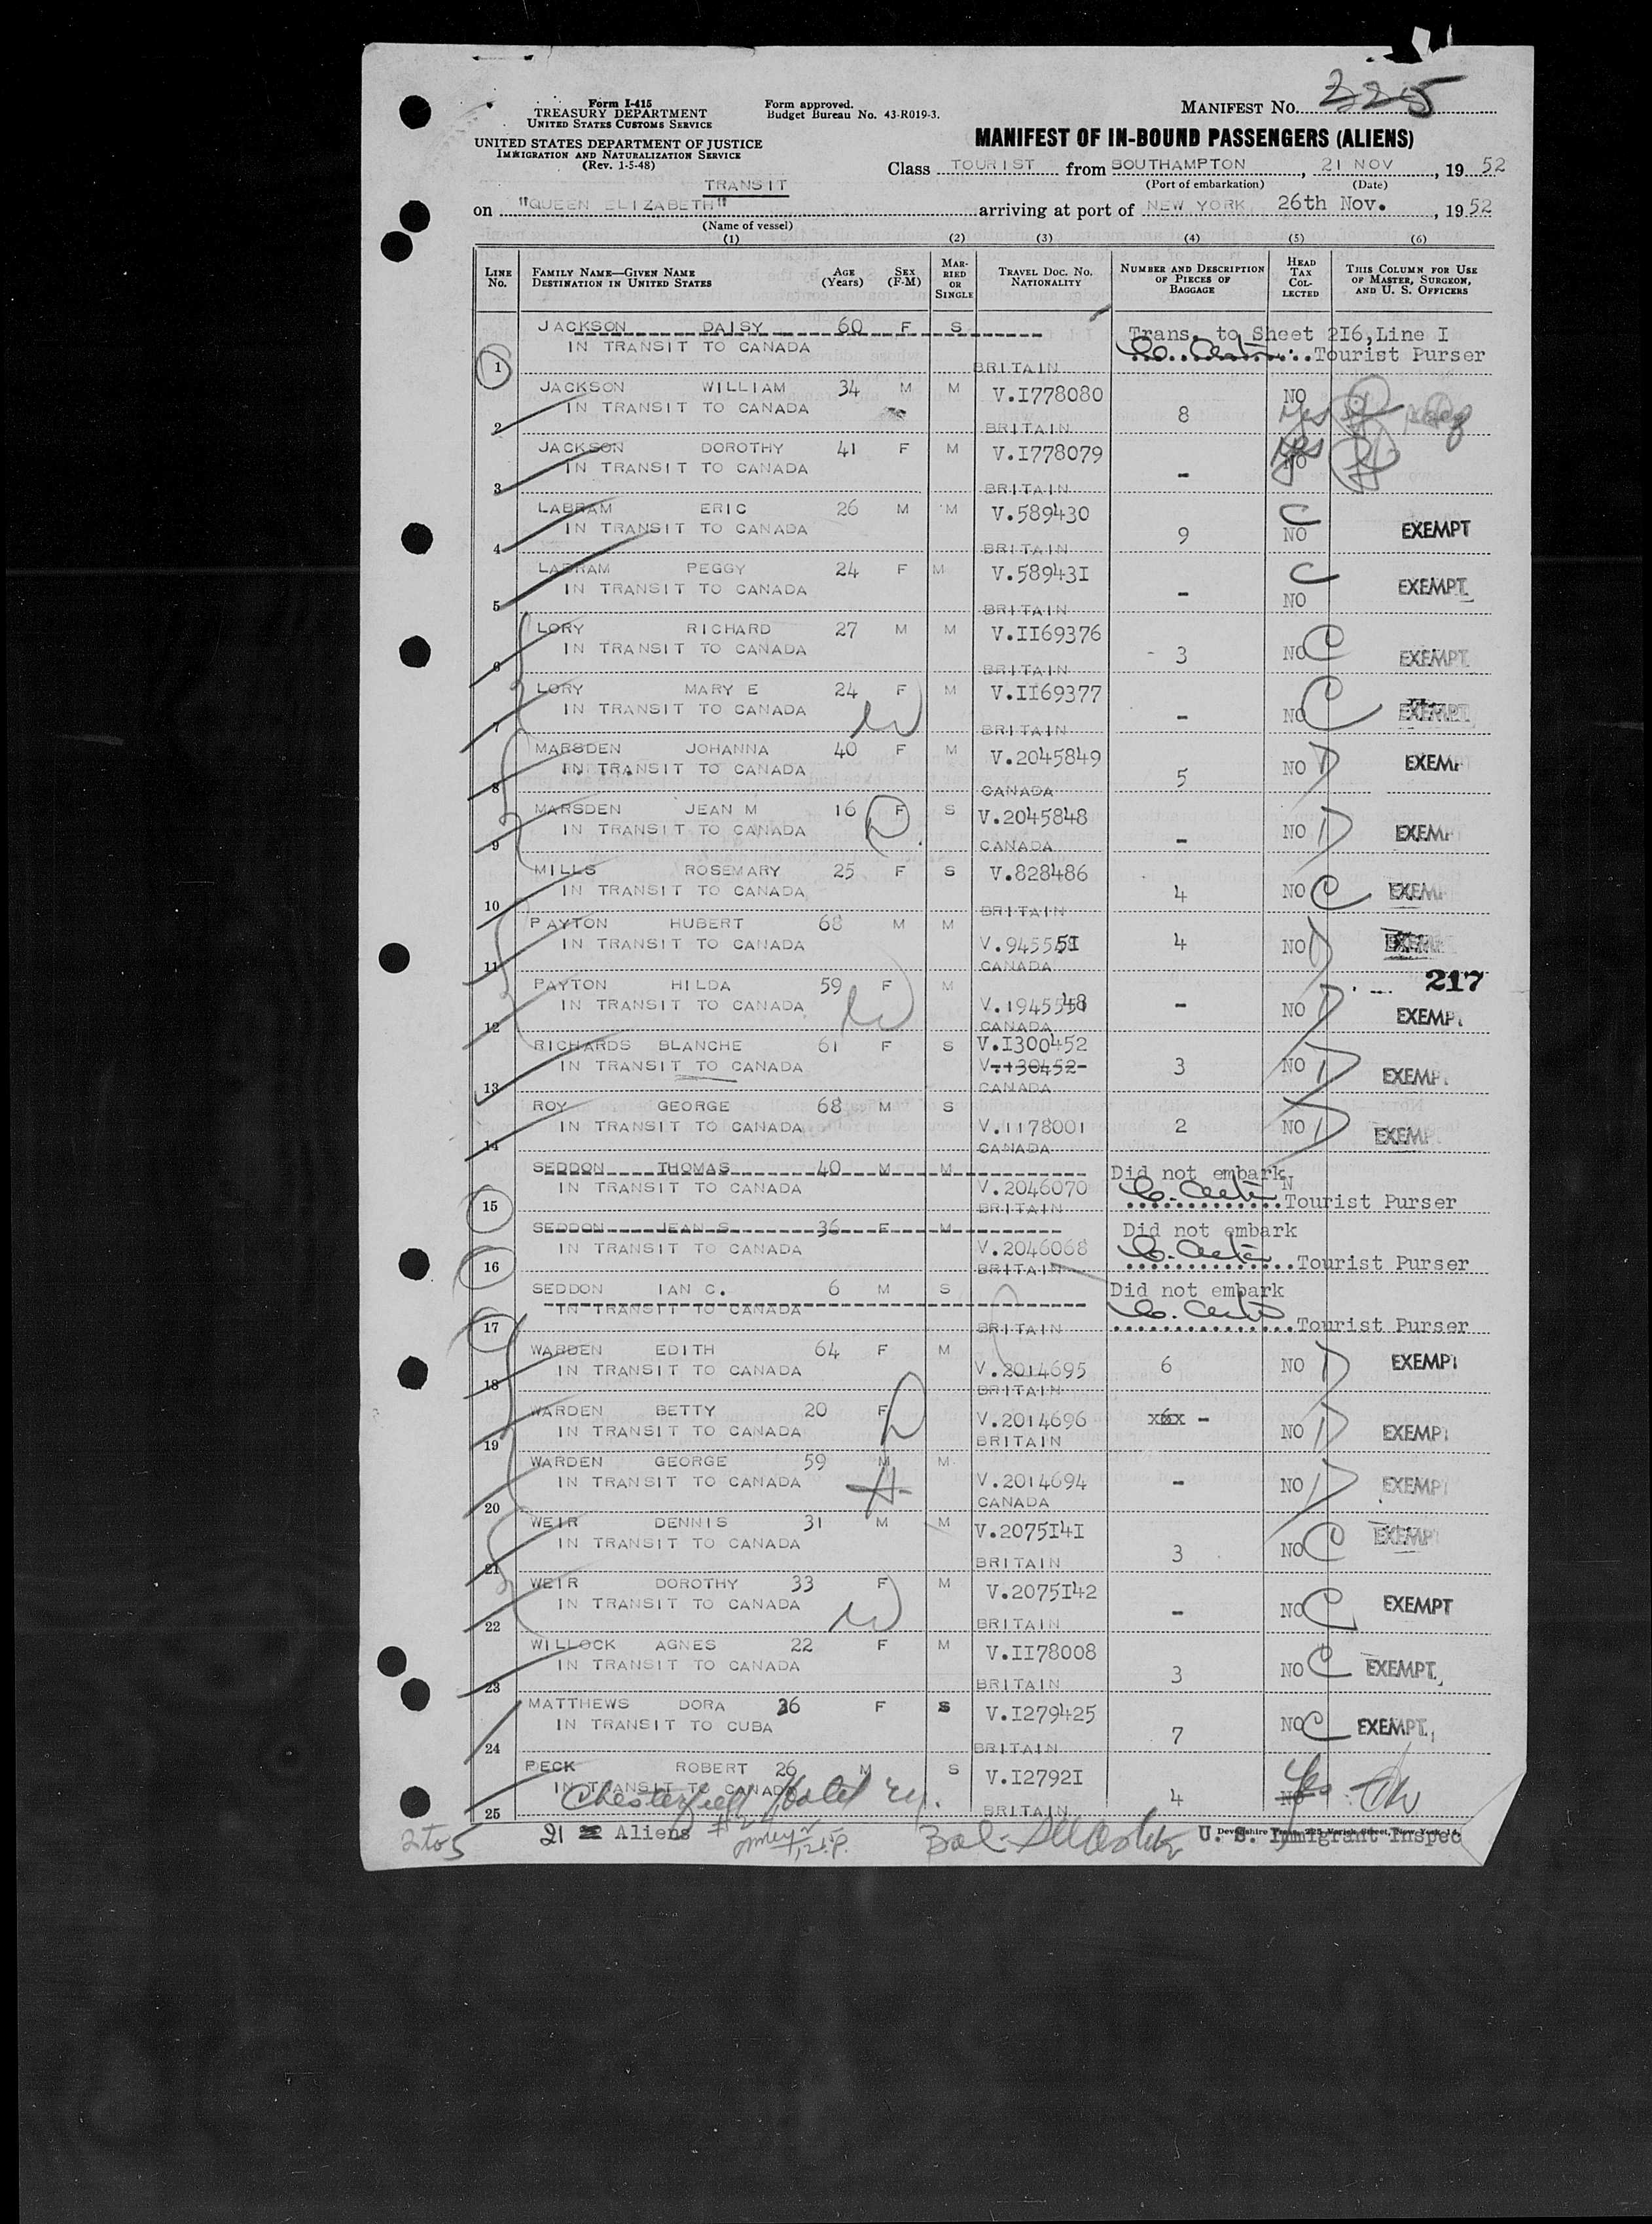 Form I-415
TREASURY DEPARTMENT
UNITED STATES CUSTOMS SERVICE
UNITED STATES DEPARTMENT OF JUSTICE
IMMIGRATION AND NATURALIZATION SERVICE
(Rev. 1-5-48)
Form approved.
Budget Bureau No. 43-R019-3.
MANIFEST No. 225
MANIFEST OF IN-BOUND PASSENGERS (ALIENS)
Class TOURIST from SOUTHAMPTON, 21 NOV, 1952
(Port of embarkation) (Date)
TRANSIT
on "QUEEN ELIZABETH" arriving at port of NEW YORK 26th Nov., 1952
(Name of vessel)
(1) (2) (3) (4) (5) (6)
LINE No. FAMILY NAME—GIVEN NAME DESTINATION IN UNITED STATES AGE (Years) SEX (F-M) MARRIED OR SINGLE TRAVEL DOC. NO. NATIONALITY NUMBER AND DESCRIPTION OF PIECES OF BAGGAGE HEAD TAX COLLECTED THIS COLUMN FOR USE OF MASTER, SURGEON, AND U. S. OFFICERS
JACKSON DAISY 60 F S Trans. to Sheet 216, Line I
IN TRANSIT TO CANADA Tourist Purser
1 BRITAIN
JACKSON WILLIAM 34 M M V.I778080 NO
IN TRANSIT TO CANADA 8 Yes
2 BRITAIN
JACKSON DOROTHY 41 F M V.I778079 Yes
IN TRANSIT TO CANADA - NO
3 BRITAIN
LABRAM ERIC 26 M M V.589430 C
IN TRANSIT TO CANADA 9 NO EXEMPT
4 BRITAIN
LABRAM PEGGY 24 F M V.58943I C
IN TRANSIT TO CANADA - NO EXEMPT
5 BRITAIN
LORY RICHARD 27 M M V.II69376
IN TRANSIT TO CANADA 3 NO C EXEMPT
6 BRITAIN
LORY MARY E 24 F M V.II69377
IN TRANSIT TO CANADA W - NO C EXEMPT
7 BRITAIN
MARSDEN JOHANNA 40 F M V.2045849
IN TRANSIT TO CANADA 5 NO EXEMP
8 CANADA
MARSDEN JEAN M 16 F S V.2045848
IN TRANSIT TO CANADA D - NO EXEMP
9 CANADA
MILLS ROSEMARY 25 F S V.828486
IN TRANSIT TO CANADA 4 NO C EXEM
10 BRITAIN
PAYTON HUBERT 68 M M
IN TRANSIT TO CANADA 4 NO EXEM
11 CANADA
217
PAYTON HILDA 59 F M
IN TRANSIT TO CANADA W - NO EXEMP
12 CANADA
RICHARDS BLANCHE 61 F S V.I300452
IN TRANSIT TO CANADA V.130452 3 NO EXEMP
13 CANADA
ROY GEORGE 68 M S
IN TRANSIT TO CANADA V.1178001 2 NO EXEMP
14 CANADA
SEDDON THOMAS 40 M M Did not embark
IN TRANSIT TO CANADA V.2046070 N Tourist Purser
15 BRITAIN
SEDDON JEAN S 36 F M Did not embark
IN TRANSIT TO CANADA V.2046068 Tourist Purser
16 BRITAIN
SEDDON IAN C. 6 M S Did not embark
IN TRANSIT TO CANADA Tourist Purser
17 BRITAIN
WARDEN EDITH 64 F M
IN TRANSIT TO CANADA V.2014695 6 NO EXEMPT
18 BRITAIN
WARDEN BETTY 20 F V.2014696 x6x -
IN TRANSIT TO CANADA D NO EXEMP
19 BRITAIN
WARDEN GEORGE 59 M M
IN TRANSIT TO CANADA H V.2014694 - NO EXEMP
20 CANADA
WEIR DENNIS 31 M M V.2075I4I
IN TRANSIT TO CANADA 3 NO C EXEMP
21 BRITAIN
WEIR DOROTHY 33 F M V.2075I42
IN TRANSIT TO CANADA W - NO C EXEMPT
22 BRITAIN
WILLOCK AGNES 22 F M V.II78008
IN TRANSIT TO CANADA 3 NO C EXEMPT
23 BRITAIN
MATTHEWS DORA 36 F S V.I279425
IN TRANSIT TO CUBA 7 NO C EXEMPT
24 BRITAIN
PECK ROBERT 26 M S V.I2792I Yes
IN TRANSIT TO CANADA 4 NO
Chesterfield Hotel
25 BRITAIN
2 to 5 21 Aliens U. S. Immigrant Inspec
Devonshire Press, 225 Varick Street, New York 14